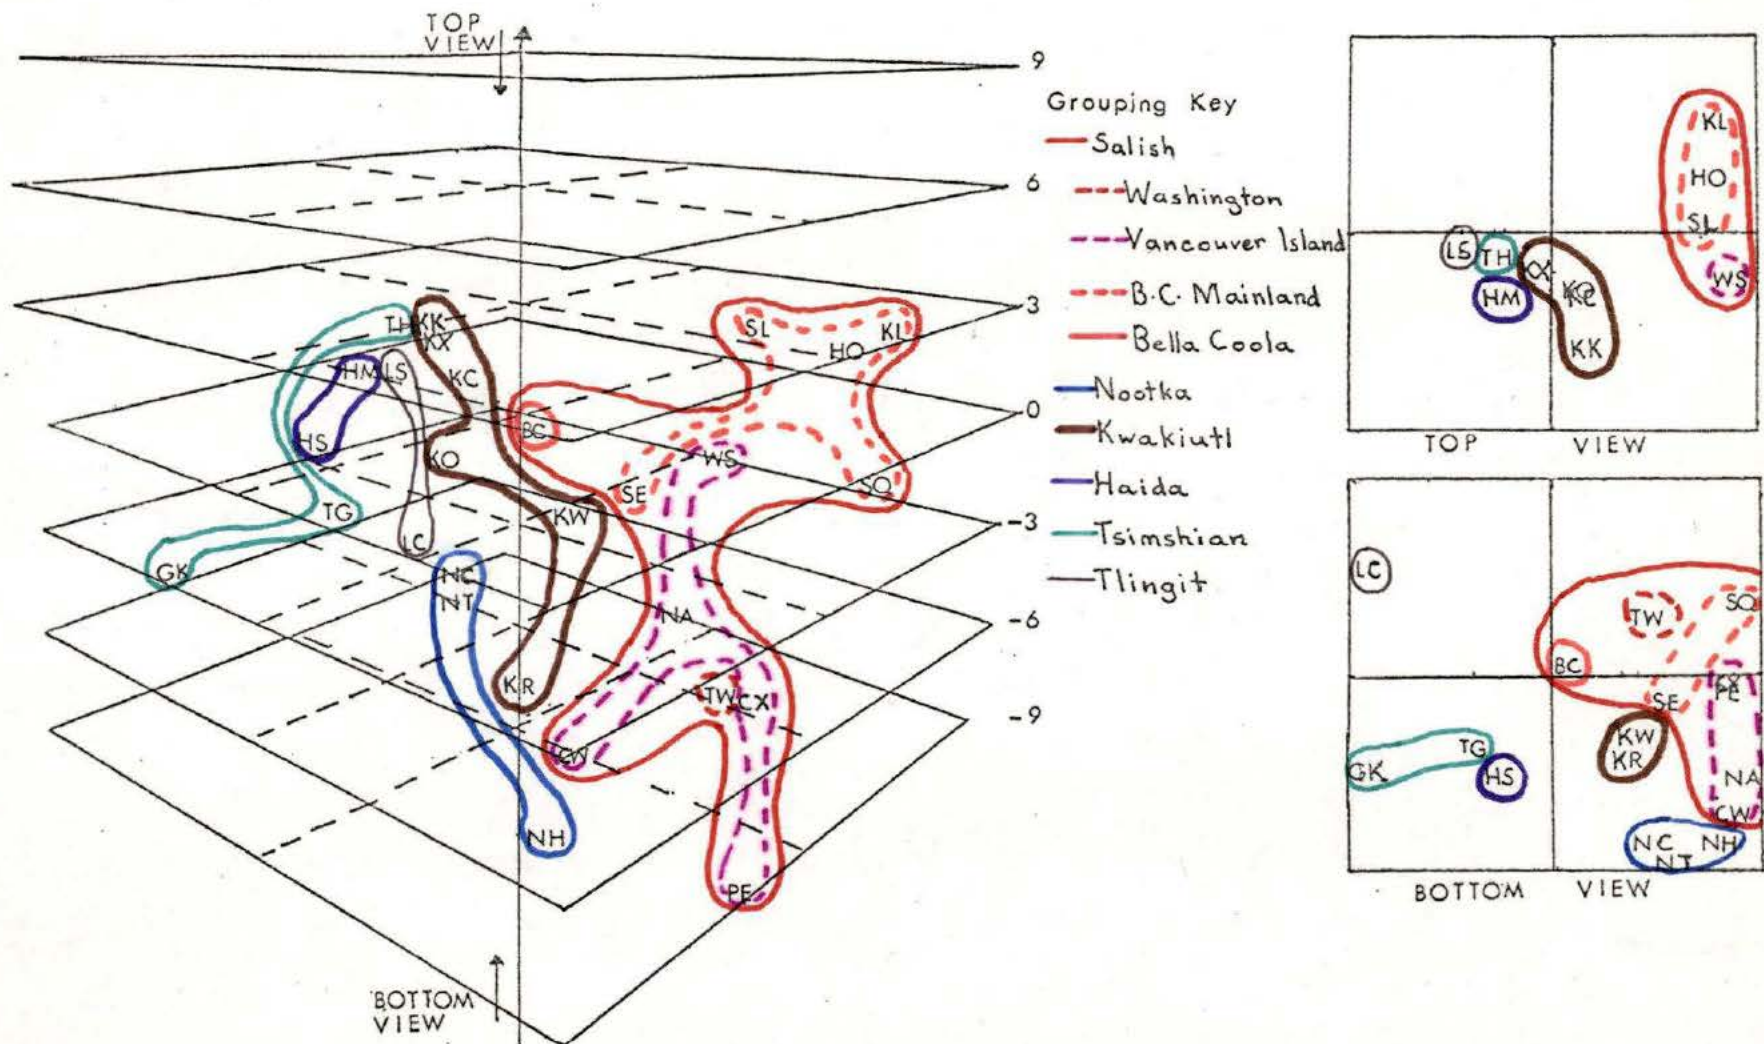 TOP
VIEW
9
6
3
0
-3
-6
-9
TH KK
KX
HM LS
KC
HS
KO
TG
KW
LC
GK
NC
NT
KR
NH
SL
KL
HO
BC
WS
SE
SQ
NA
TW CX
CW
PE
BOTTOM
VIEW
Grouping Key
Salish
Washington
Vancouver Island
B.C. Mainland
Bella Coola
Nootka
Kwakiutl
Haida
Tsimshian
Tlingit
KL
HO
SL
LS TH KX
WS
HM
KC
KK
TOP VIEW
LC
SQ
TW
BC
PE
SE
KW
TG
KR
GK
HS
NA
CW
NC NH
NT
BOTTOM VIEW